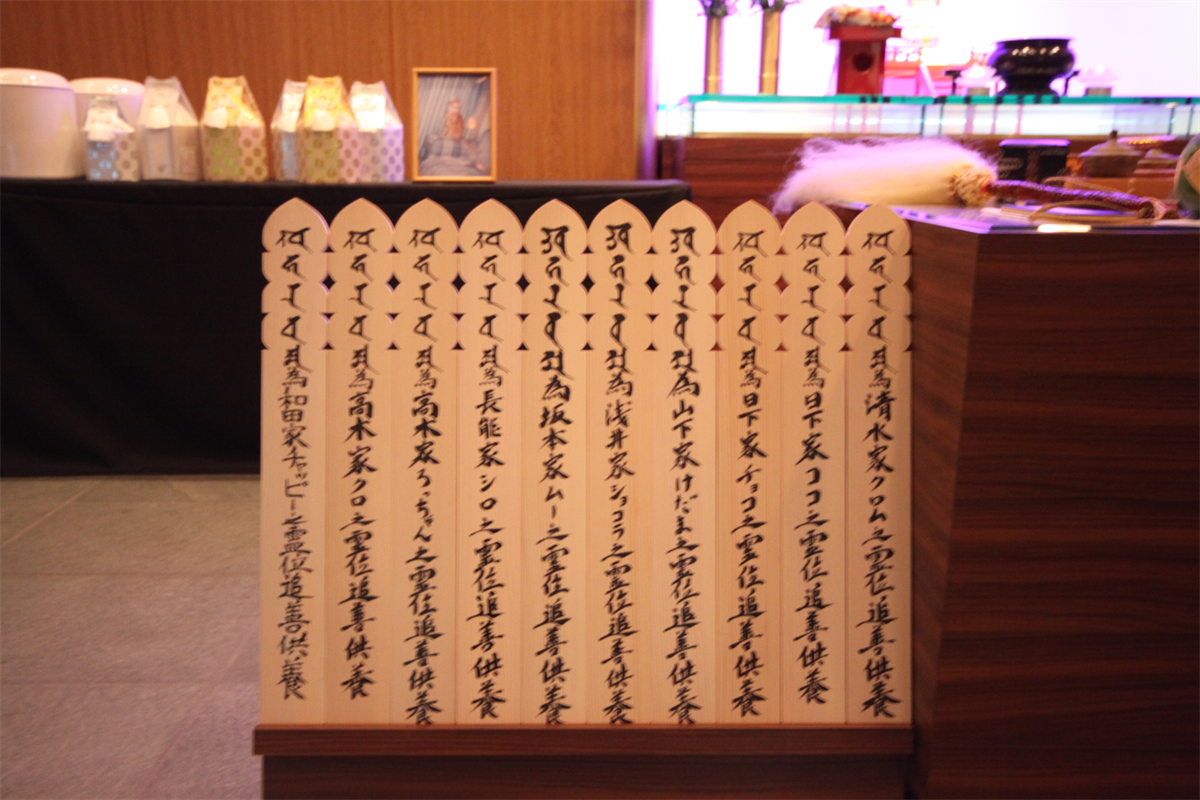 為清水家クロム之霊位追善供養
為日下家ココ之霊位追善供養
為日下家チョコ之霊位追善供養
為山下家けだま之霊位追善供養
為浅井家ショコラ之霊位追善供養
為坂本家ムー之霊位追善供養
為長能家シロ之霊位追善供養
為高木家ろっちゃん之霊位追善供養
為高木家クロ之霊位追善供養
為和田家チャッピー之霊位追善供養